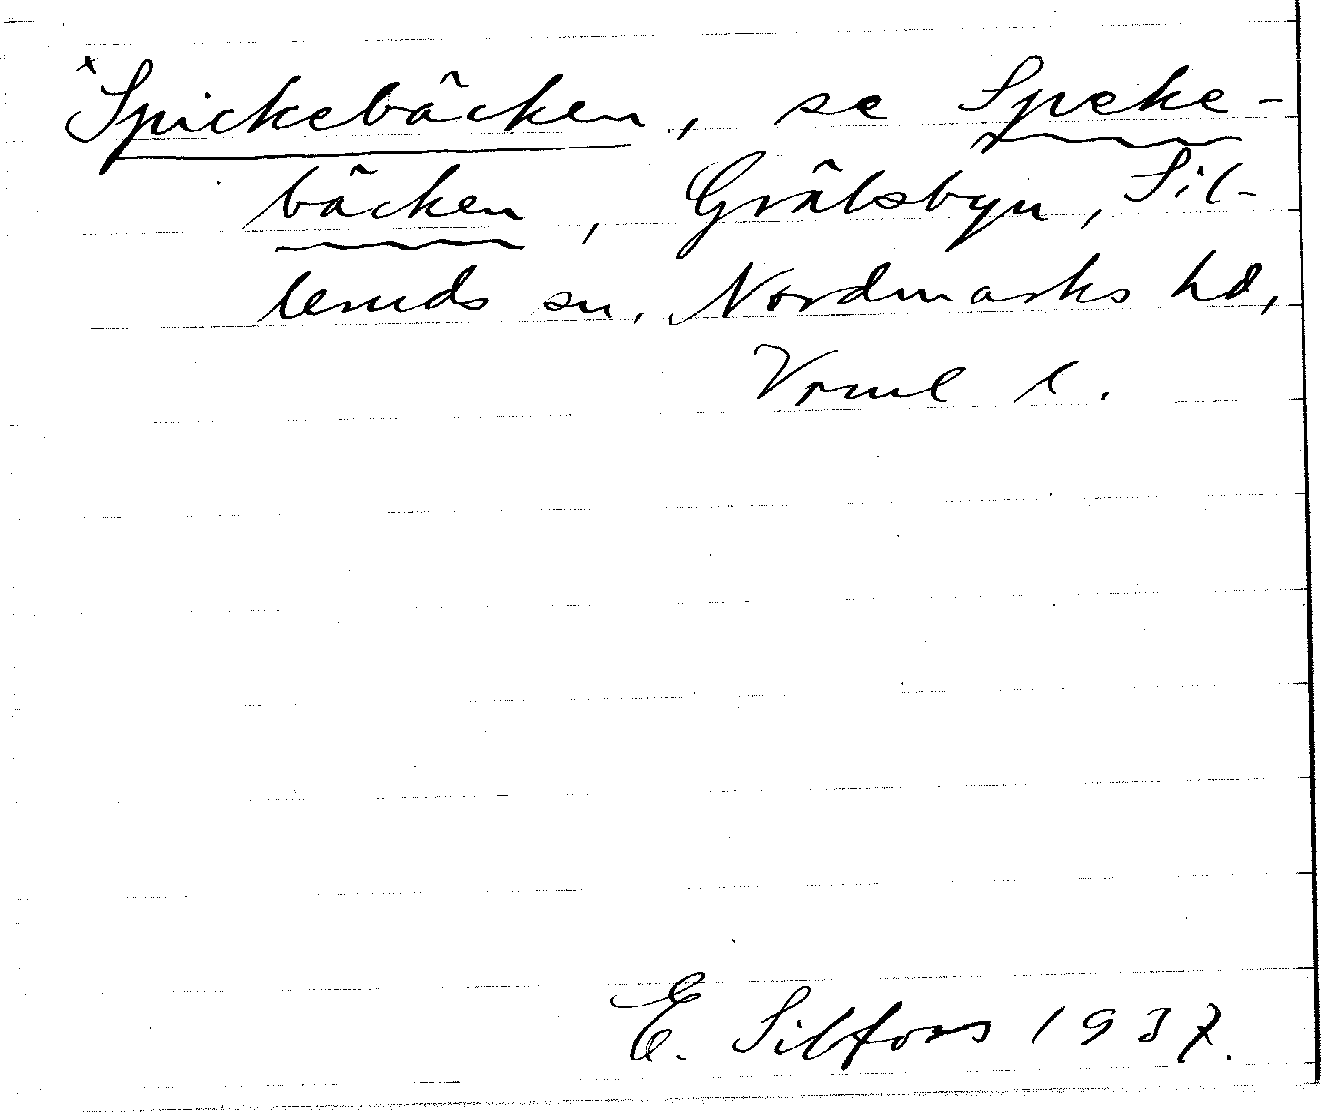 ×Spickebäcken, se Speke-
bäcken, Grälsbyn, Sil-
leruds sn, Nordmarks hd,
Vrml l.
E. Silfors 1937.